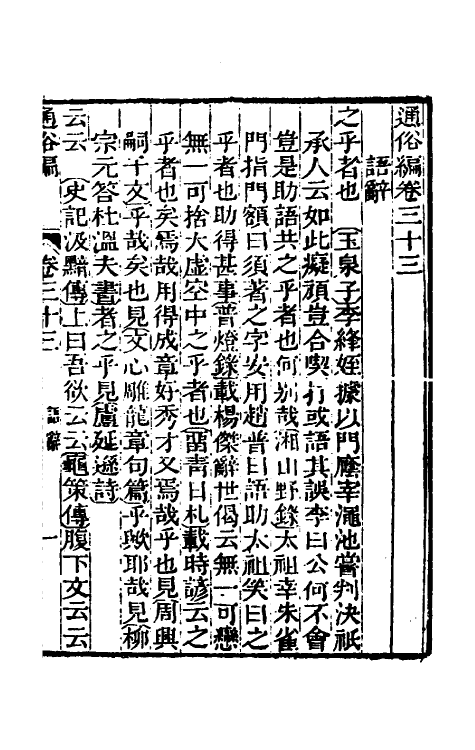 通俗編卷三十三
語辭
之乎者也（玉泉子）李絳姪據以門廕宰澠池嘗判決祇
承人云如此癡頑豈合喫杖或語其誤李曰公何不會
豈是助語共之乎者也何別哉（湘山野錄）太祖幸朱雀
門指門額曰須著之字安用趙普曰語助太祖笑曰之
乎者也助得甚事（普燈錄）載楊傑辭世偈云無一可戀
無一可捨大虛空中之乎者也（留靑日札）載時諺云之
乎者也矣焉哉用得成章好秀才又焉哉乎也見周興
嗣千文乎哉矣也見（文心雕龍章句篇）乎歟耶哉見柳
宗元答杜溫夫書者之乎見盧延遜詩
云云（史記汲黯傳）上曰吾欲云云（龜策傳）腹下文云云
通俗編 卷三十三 語辭 一